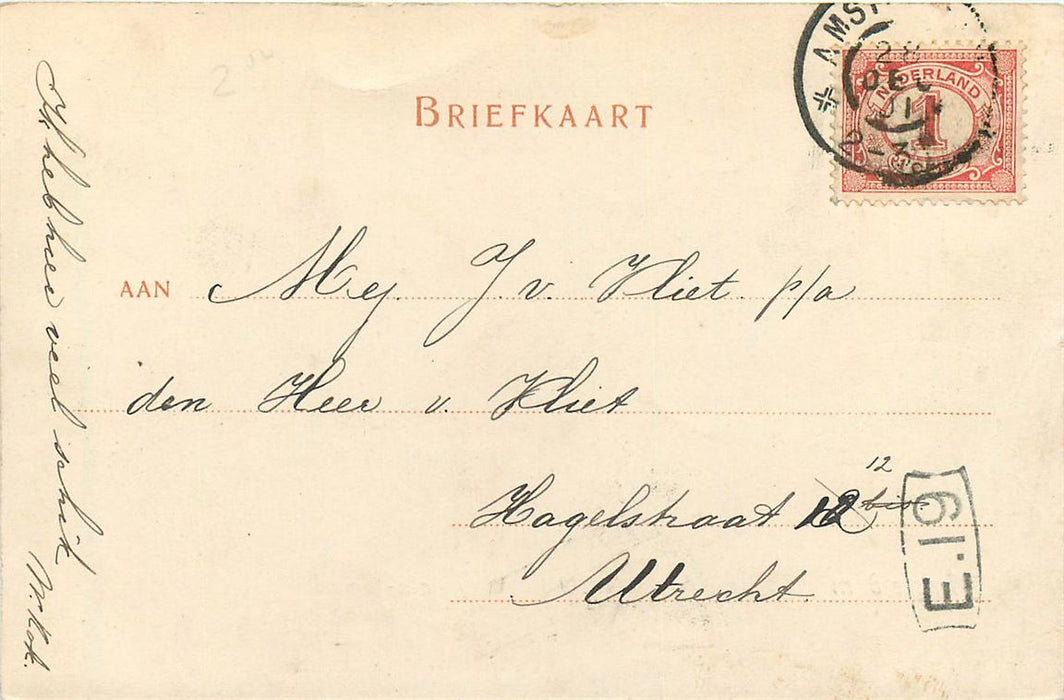 BRIEFKAART
NEDERLAND
1
28
DEC
01
AAN Mej. J. v. Vliet p/a
den Heer v. Vliet
12
Hagelstraat 12 bis
Utrecht.
E.19
Ik heb hier veel schik